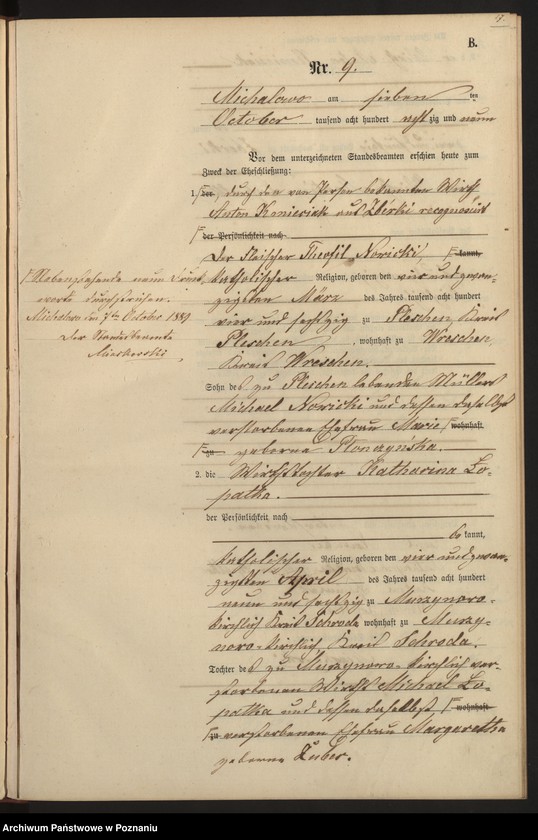 B.
Nr. 9.
Michalowo am sieben ten
October tausend acht hundert acht zig und neun
Vor dem unterzeichneten Standesbeamten erschien heute zum
Zweck der Eheschließung:
1. der, durch den von Person bekannten Wirth
Anton Konieciak aus Zberki recognoscirt
der Persönlichkeit nach
der Fleischer Theofil Nowicki, kannt,
katholischer Religion, geboren den vier und zwan-
zigsten März des Jahres tausend acht hundert
vier und sechszig zu Pleschen, Kreis
Pleschen, wohnhaft zu Wreschen,
Kreis Wreschen.
Sohn des zu Pleschen lebenden Müllers
Michael Nowicki und dessen daselbst
verstorbenen Ehefrau Marie wohnhaft
zu geborene Plonczyńska.
2. die Wirthstochter Katharina Lo-
patka.
der Persönlichkeit nach
be kannt,
katholischer Religion, geboren den vier und zwan-
zigsten April des Jahres tausend acht hundert
neun und sechszig zu Murzynowo-
kirchlich Kreis Schroda wohnhaft zu Murzy-
nowo-kirchlich, Kreis Schroda.
Tochter des zu Murzynowo-kirchlich ver-
storbenen Wirths Michael Lo-
patka und dessen daselbst wohnhaft
zu verstorbenen Ehefrau Margaretha
geborene Zuber.
Nebenstehende neun Druck
worte durchstrichen.
Michalowo den 7ten October 1889
Der Standesbeamte
Archiwum Państwowe w Poznaniu